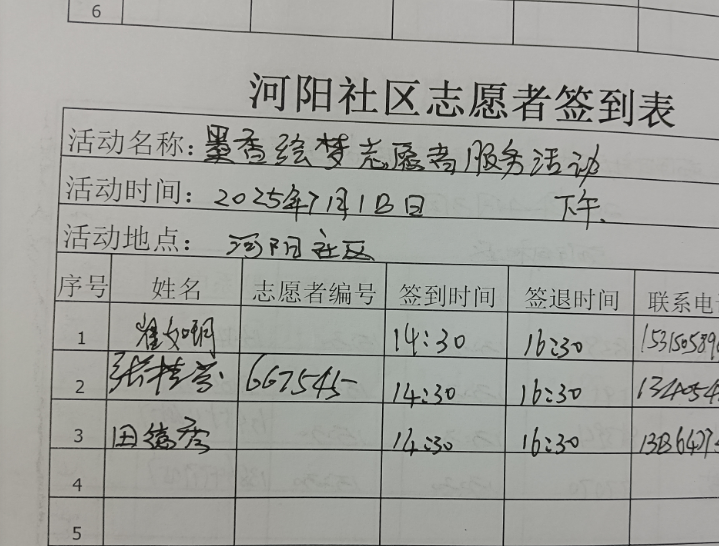 6
河阳社区志愿者签到表
活动名称：墨香绘梦志愿者服务活动
活动时间：2025年7月1日日 下午.
活动地点：河阳社区
序号 姓名 志愿者编号 签到时间 签退时间 联系电
1 14:30 16:30
2 张桂芬 667545 14:30 16:30
3 田德秀 14:30 16:30
4
5